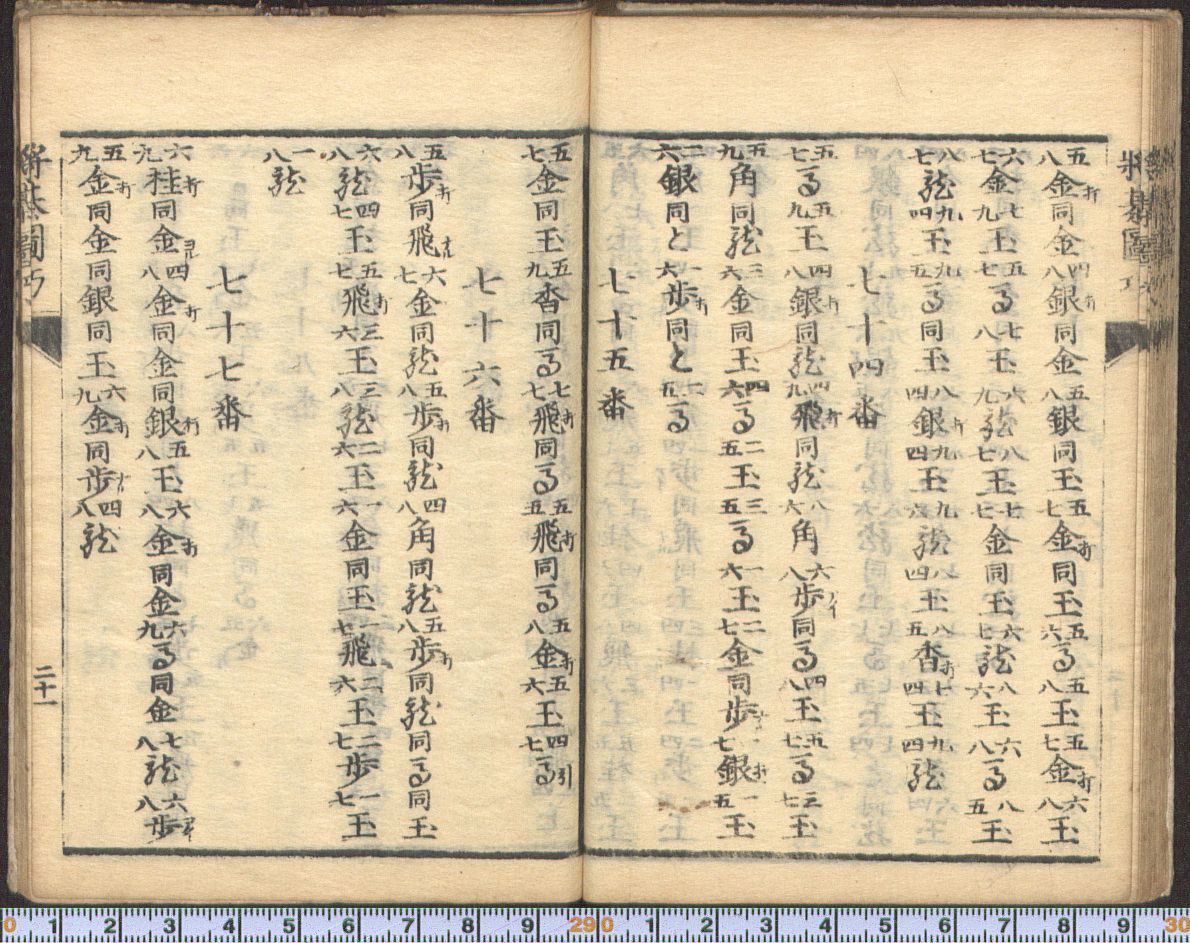 将棊圖巧
五八金打同金四八銀打同金五八銀同玉五七金打同玉五六馬五八玉五七金打六八玉
六七金七九玉五七馬七八玉六九龍八七玉七七金同玉六七龍八六玉六八馬八五玉
八七龍九四玉九五馬同玉八四銀打九四玉九六龍八四玉八五香打七四玉九四龍
七十四番
五七馬五九玉四八銀打同龍四九飛打同龍八六角六八歩アイ同馬四八玉五七馬三七玉
五九角同龍三六金同玉四六馬二五玉三五馬一六玉二七金同歩七銀打一五玉
二六銀同と一六歩打同と一五馬
七十五番
五七金同玉五九香同馬七七飛打同馬五五飛打同馬五八金打五六玉四七馬引
七十六番
五八歩打同飛ナル六七金同龍五八歩打同龍四八角同龍五八歩打同龍同馬同玉
六八龍四七玉五七飛打三六玉三八龍二六玉一六金同玉一七飛二六玉二七歩一七玉
一八龍
七十七番
六九桂打同金ヨル四八金打同金同銀打五八玉六八金打同金六九馬同金七八龍六八歩アイ
五九金打同金同銀同玉六九金打同歩ナル四八龍
将棊圖巧
二十一